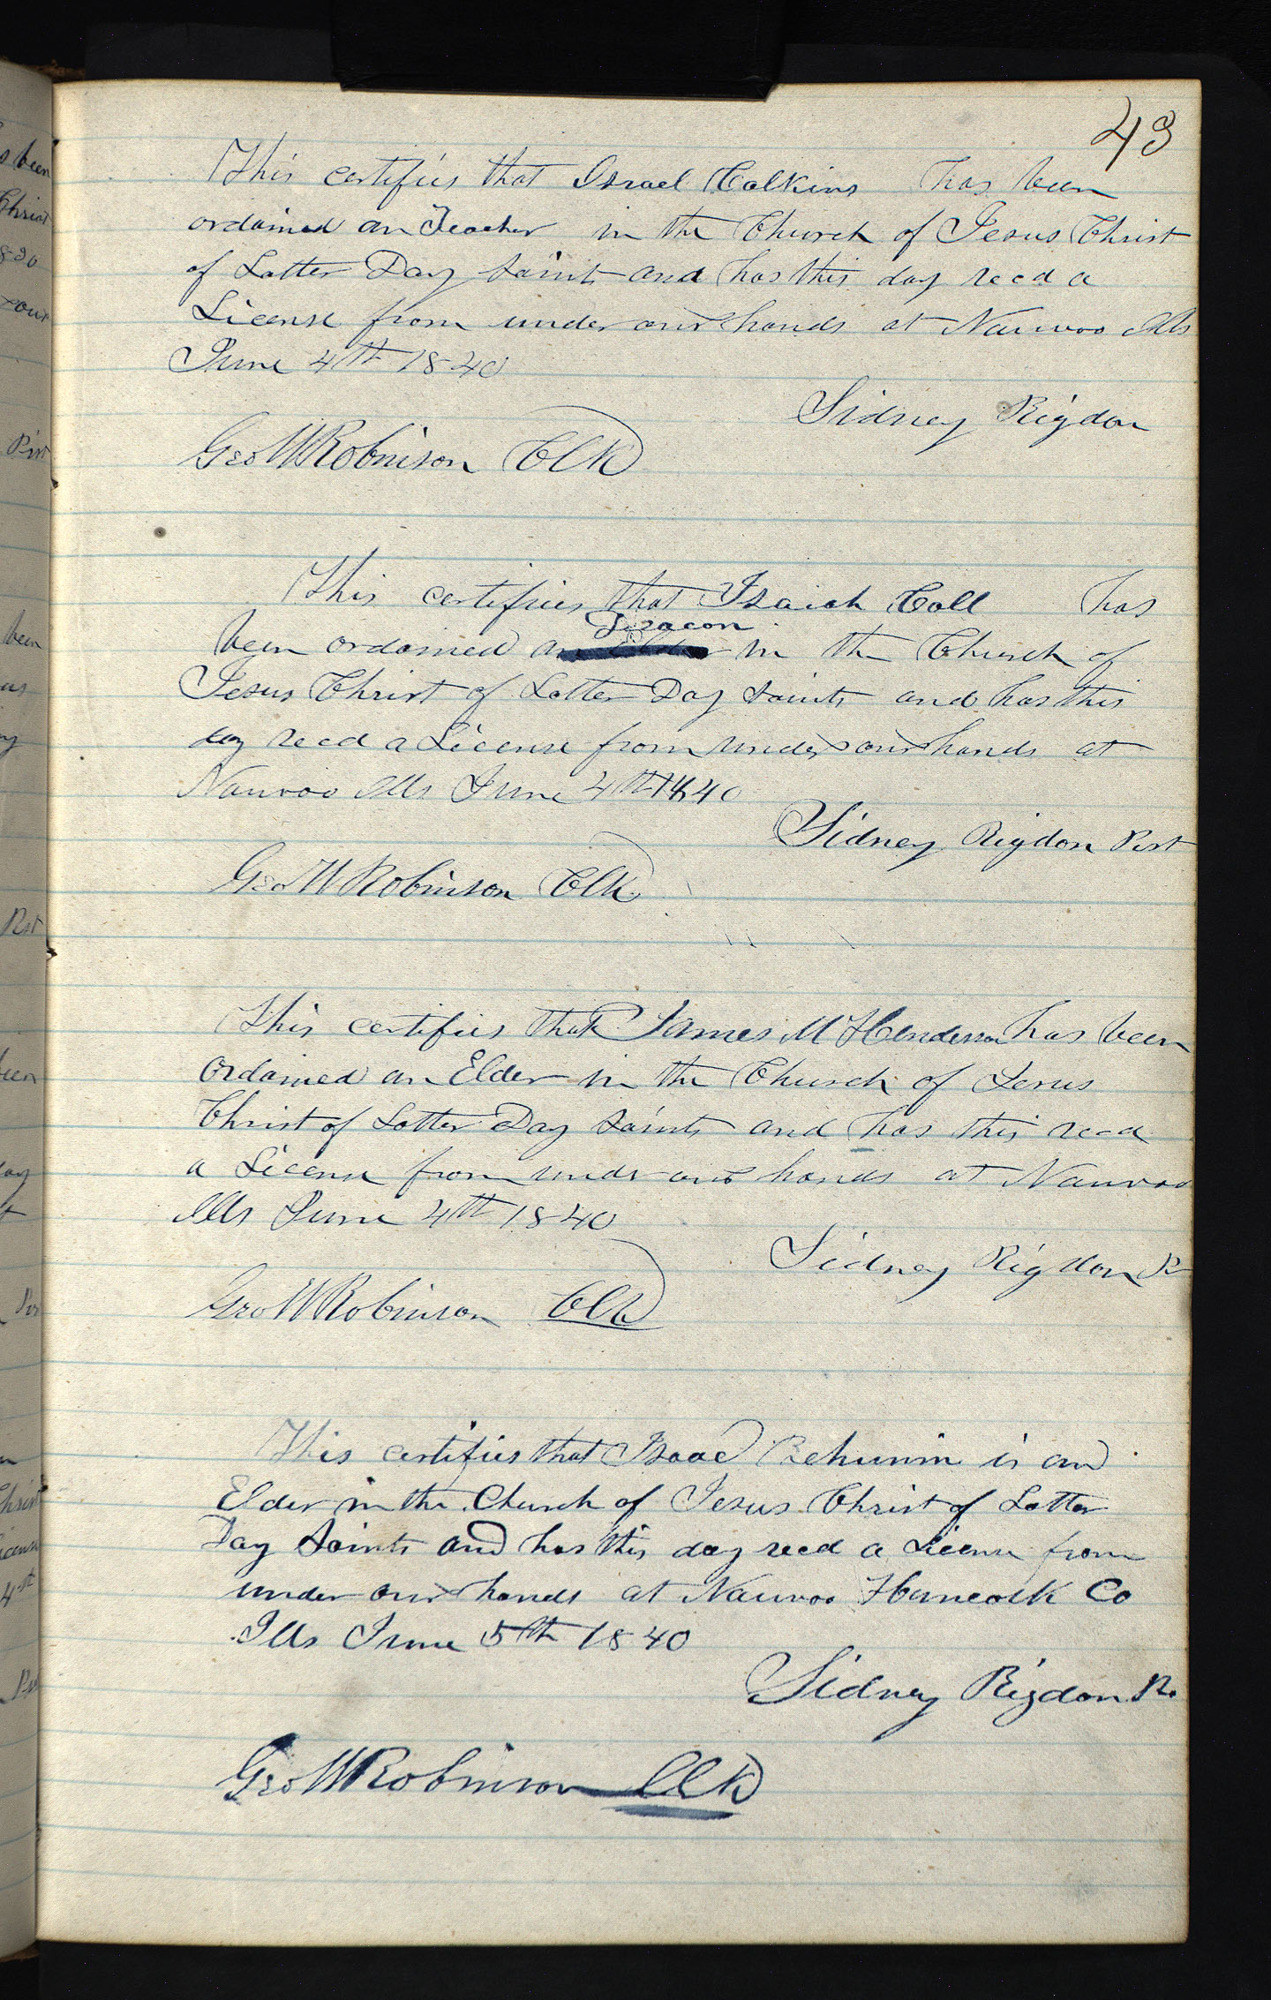 43
This certifies that Israel Calkins has been
ordained an Teacher in the Church of Jesus Christ
of Latter Day Saints and has this day recd a
License from under our hands at Nauvoo Ills
June 4th 1840
Sidney Rigdon
Geo W Robinson Clk
This certifies that Isaiah Coll has
Deacon
been ordained an in the Church of
Jesus Christ of Latter Day Saints and has this
day recd a License from under our hands at
Nauvoo Ills June 4th 1840
Sidney Rigdon Prst
Geo W Robinson Clk
This certifies that James M Henderson has been
Ordained an Elder in the Church of Jesus
Christ of Latter Day Saints and has this recd
a License from undr our hands at Nauvoo
Ills June 4th 1840
Sidney Rigdon Pr
Geo W Robinson Clk
This certifies that Isaac Behunin is an
Elder in the Church of Jesus Christ of Latter
Day Saints and has this day recd a License from
under our hands at Nauvoo Hancock Co
Ills June 5th 1840
Sidney Rigdon Pr
Geo W Robinson Clk